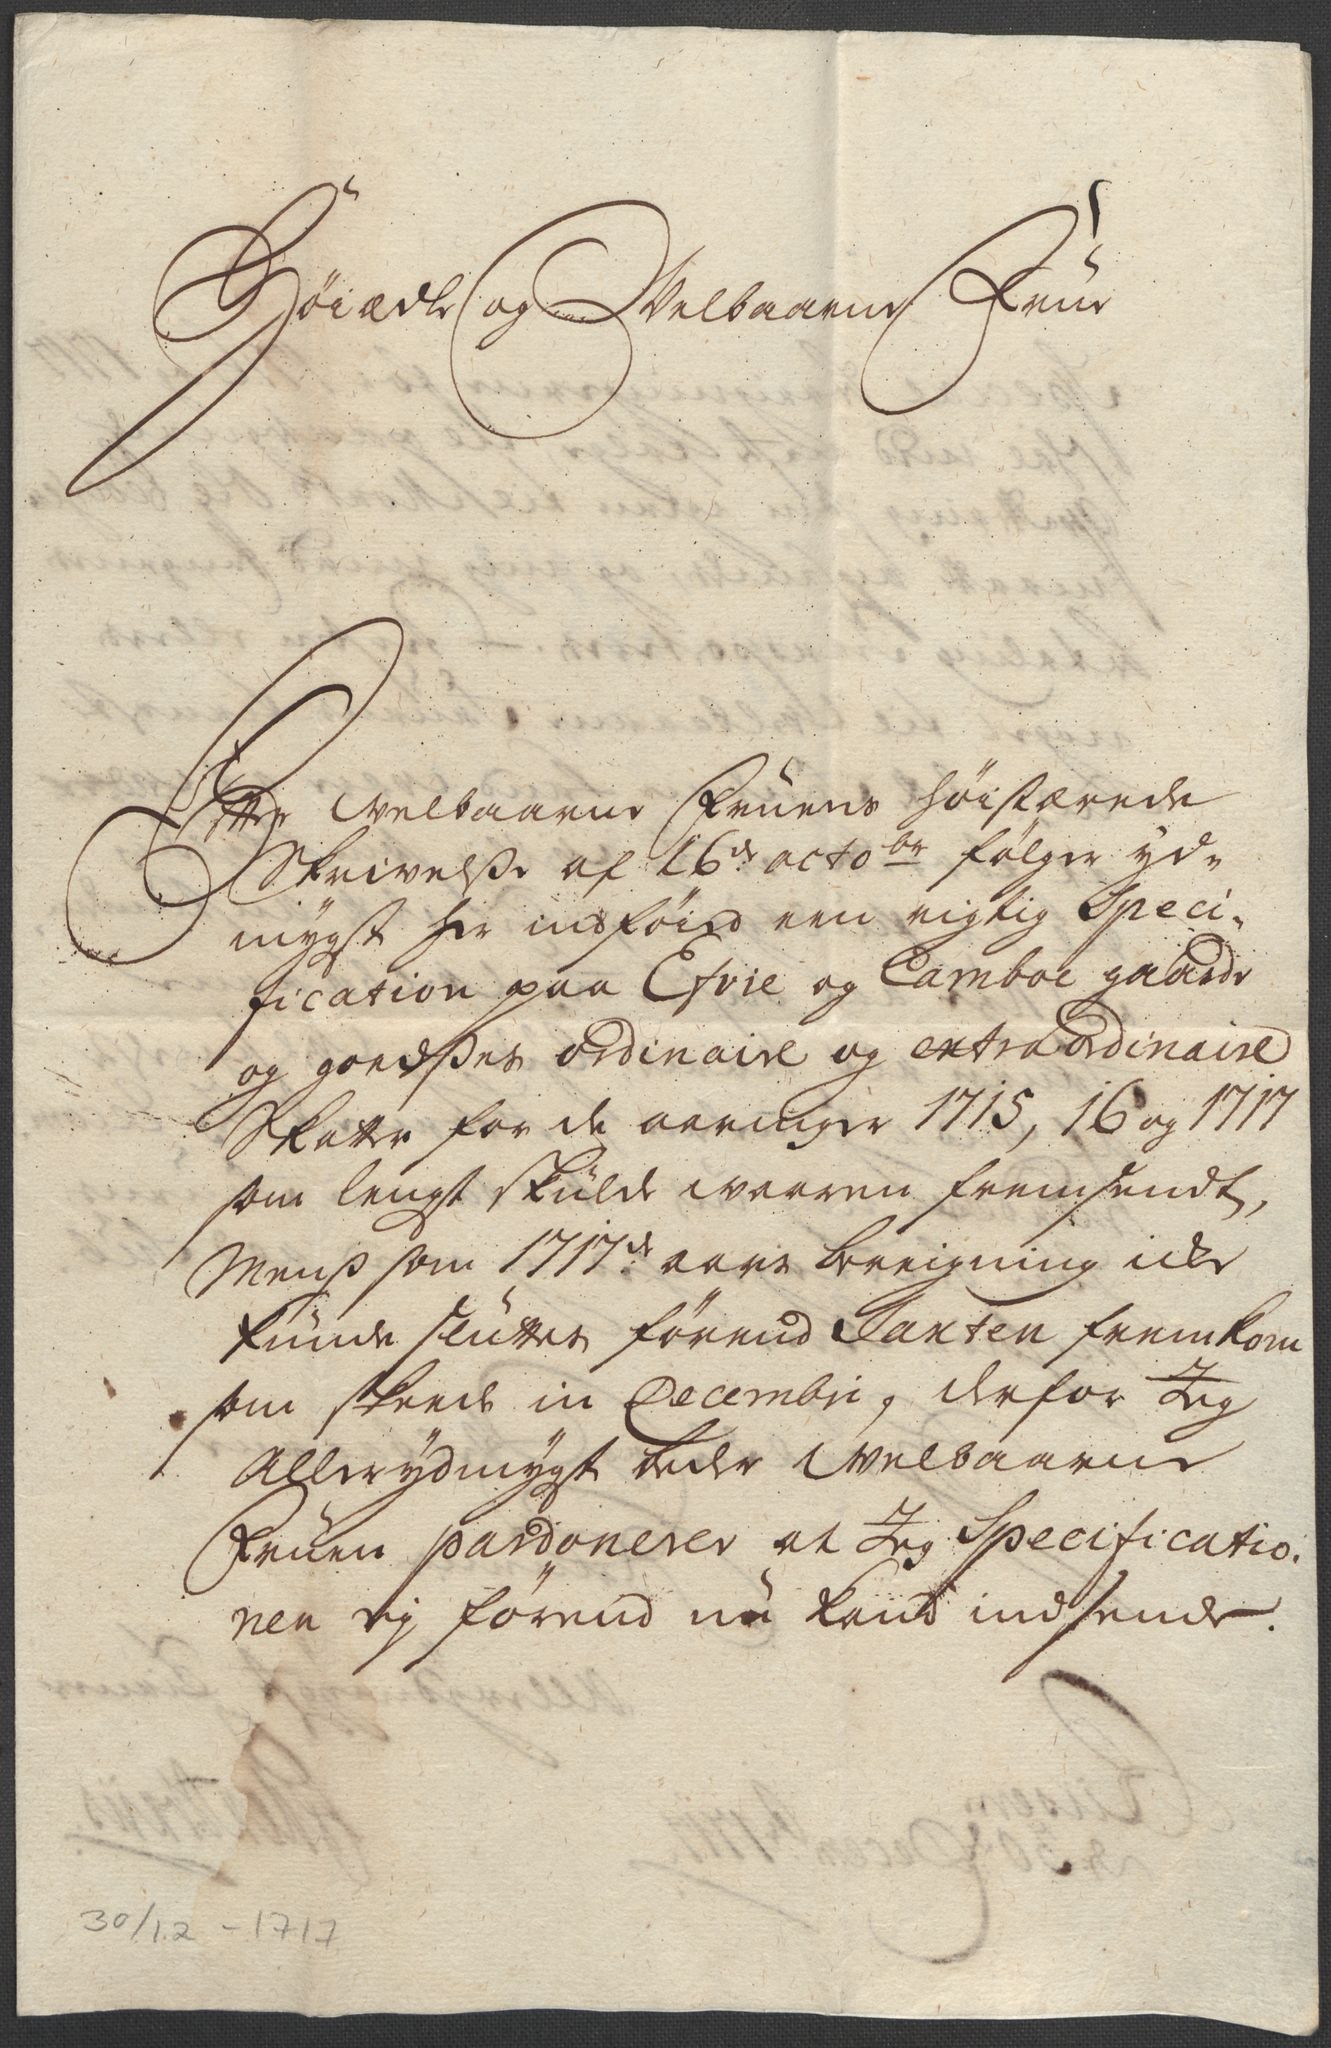 Høiædle og Velbaarne Frue
Efter Velbaarne Fruens høistærede
Skrivelße af 16de octobr følger yd-
mygst her indføied een rigtig Speci-
fication paa Efvie og Camboe gaarde
og goedßes ordinaire og extraordinaire
Skatter for de aaringer 1715, 16 og 1717
som lengst skulde vaaren fremsendt,
Menß som 1717de aars bereigning icke
kunde sluttes førend Taxten fremkom
som skeede in Decembri, derfor Jeg
Allerydmygst beder Velbaarne
Fruen pardonerer at Jeg Specificatio-
nen ej førend nu kand indsende.
30/12 - 1717